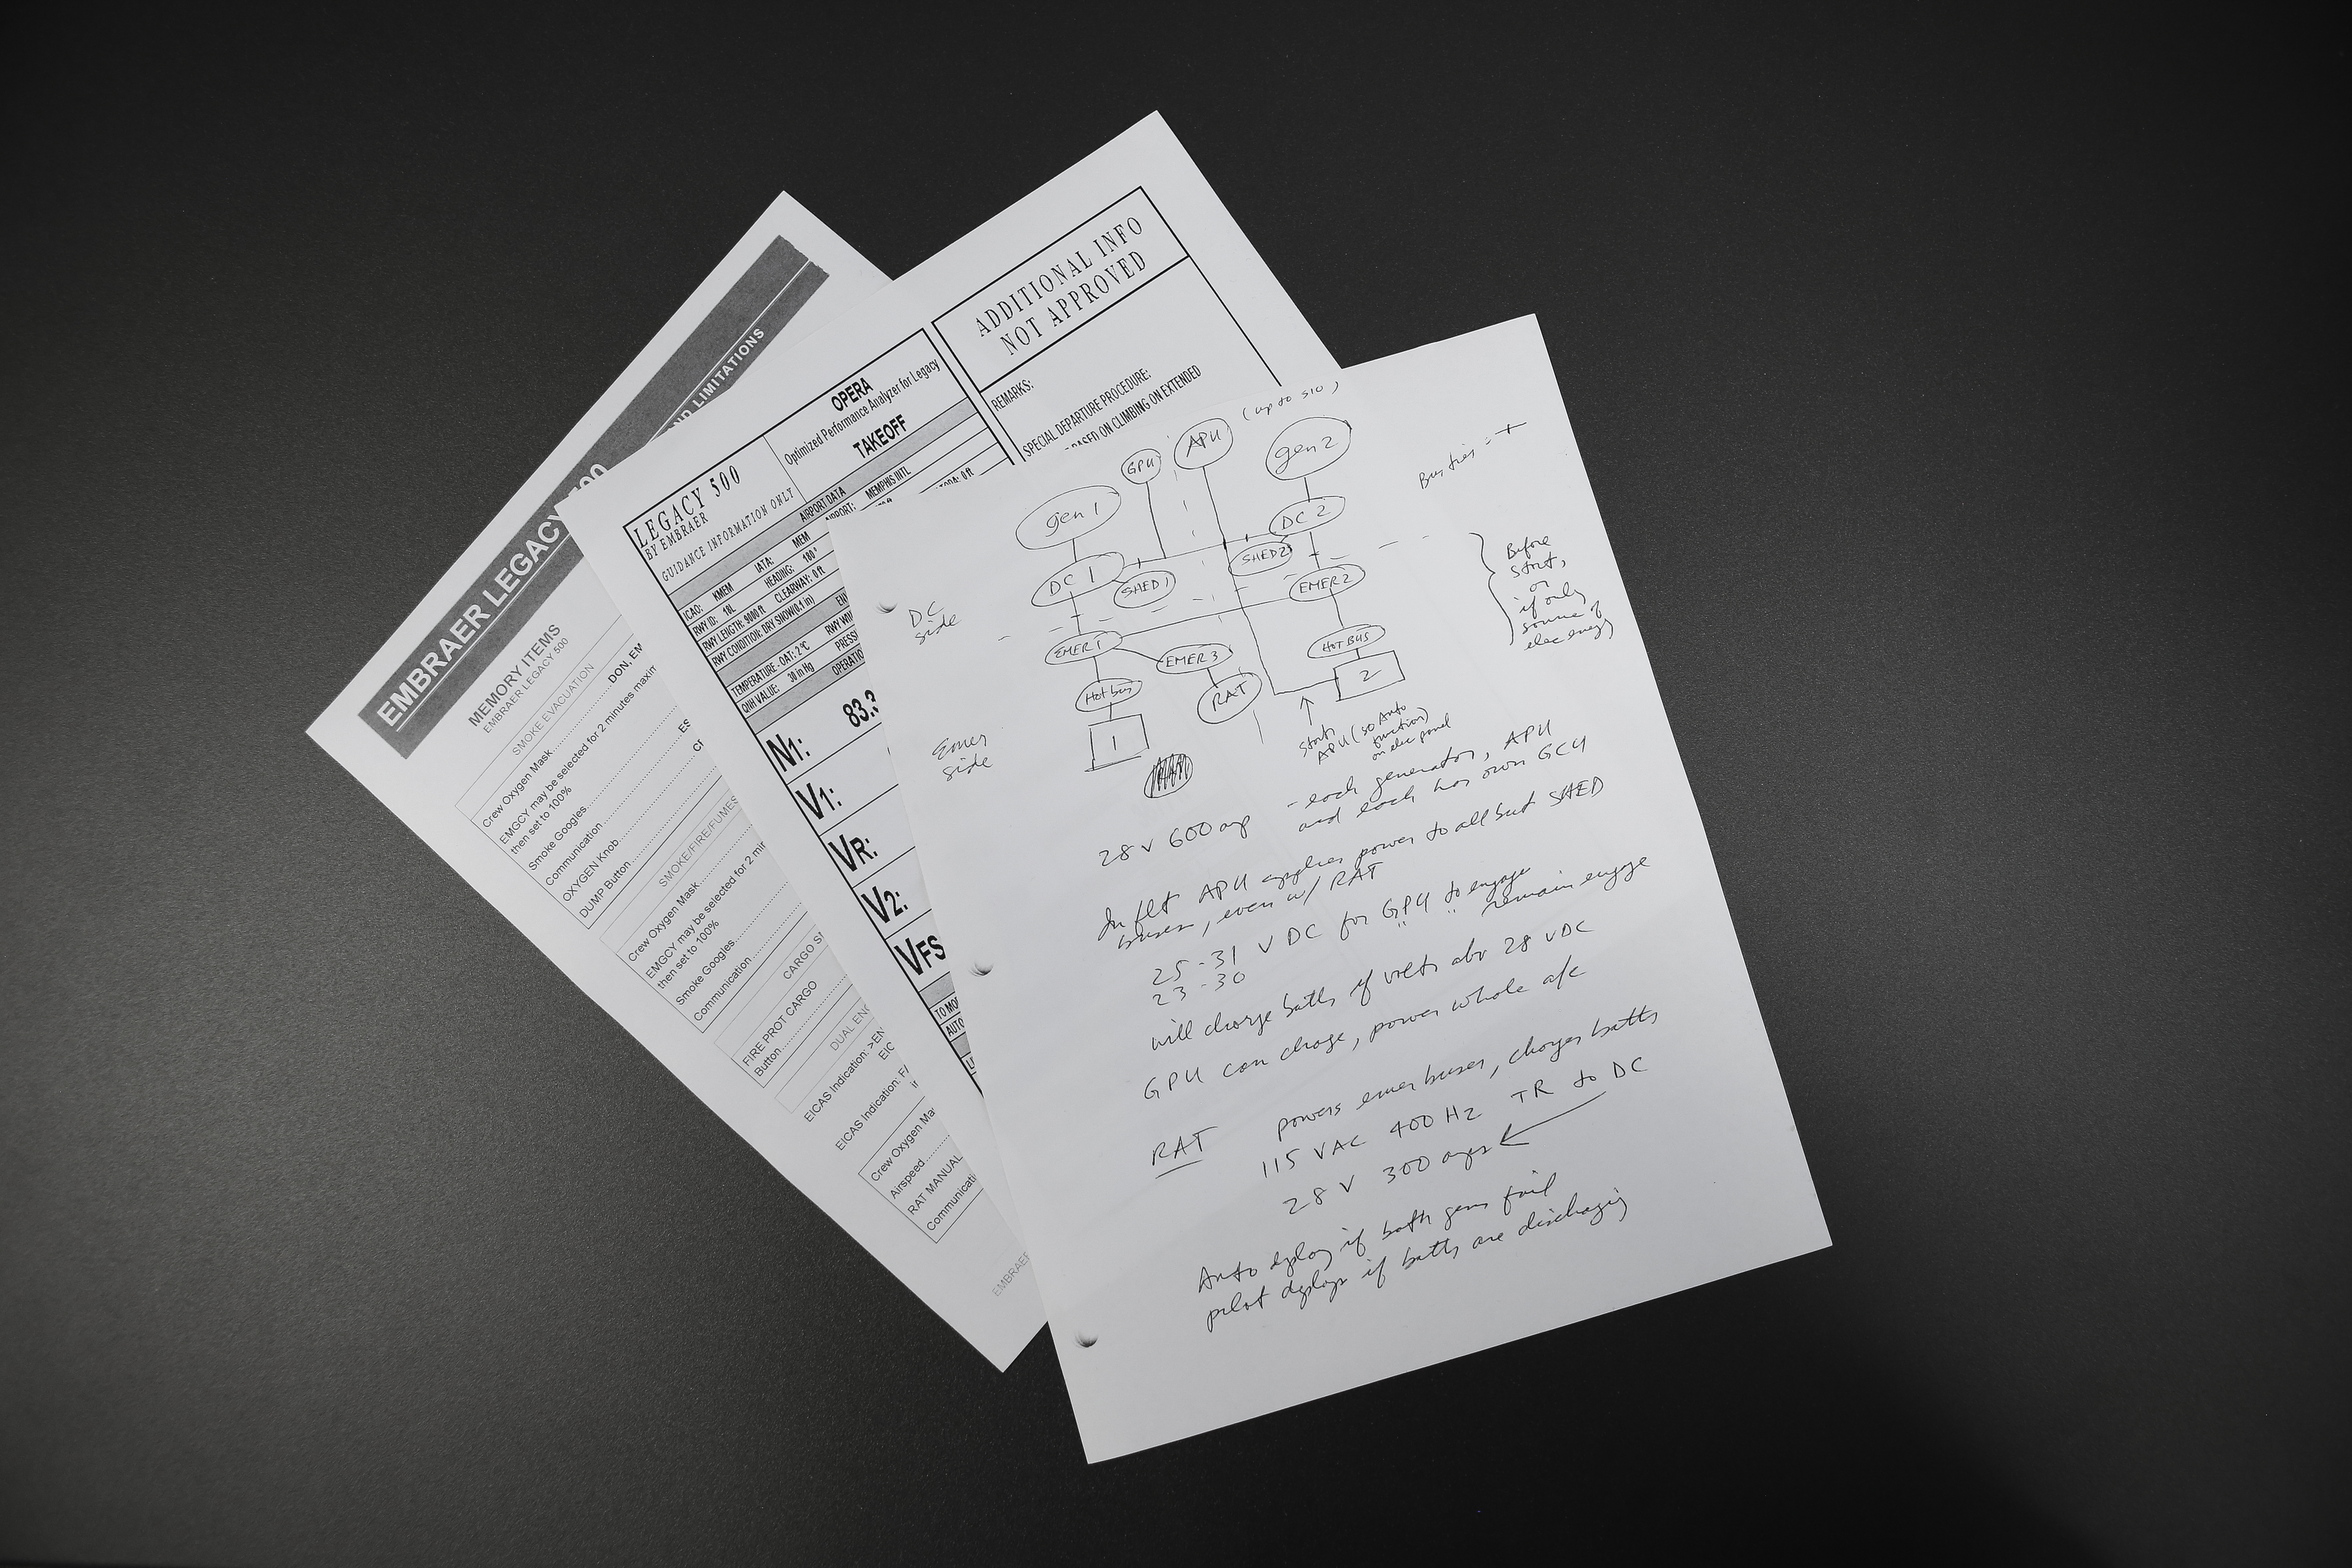 EMBRAER LEGACY 500
AND LIMITATIONS
MEMORY ITEMS
EMBRAER LEGACY 500
SMOKE EVACUATION
Crew Oxygen Mask.................DON, EM
EMGCY may be selected for 2 minutes maxim
then set to 100%
Smoke Goggles
Communication
OXYGEN Knob
DUMP Button
SMOKE/FIRE/FUMES
Crew Oxygen Mask
EMGCY may be selected for 2 mir
then set to 100%
Smoke Goggles
Communication
CARGO SM
FIRE PROT CARGO
Button
DUAL ENG
EICAS Indication: >EN
EIC
EICAS Indication: FA
Crew Oxygen Ma
Airspeed
RAT MANUAL
Communicati
EMBRAER
LEGACY 500
BY EMBRAER
GUIDANCE INFORMATION ONLY
OPERA
Optimized Performance Analyzer for Legacy
TAKEOFF
AIRPORT DATA
ICAO: KMEM IATA: MEM AIRPORT: MEMPHIS INTL
RWY ID: 18L HEADING: 180°
RWY LENGTH: 9000 ft CLEARWAY: 0 ft
RWY CONDITION: DRY SNOW(0.1 in)
TEMPERATURE - OAT: 2 °C RWY WIN
QNH VALUE: 30 in Hg PRESS
OPERATIO
N1: 83.3
V1:
VR:
V2:
VFS
TO MO
AUTO
ADDITIONAL INFO
NOT APPROVED
REMARKS:
SPECIAL DEPARTURE PROCEDURE:
BASED ON CLIMBING ON EXTENDED
(up to 510)
GPU APU gen 2
gen 1
DC 2
Bus ties = +
DC 1 SHED 1 SHED 2
EMER 2
DC
side
Before
start,
or
if only
source of
elec energy
EMER 1 EMER 3 HOT BUS
Hot bus RAT 2
1
Emer
side
starts
APU (so Auto
function)
on elec panel
28 V 600 amp
- each generator, APU
and each has own GCU
In flt APU applies power to all but SHED
buses, even w/ RAT
25-31 V DC for GPU to engage
23-30 " " remain engage
will charge batts if volts abv 28 VDC
GPU can charge, power whole a/c
RAT powers emer buses, charges batts
115 VAC 400 Hz TR to DC
28 V 300 amps
Auto deploy if both gens fail
pilot deploys if batts are discharging